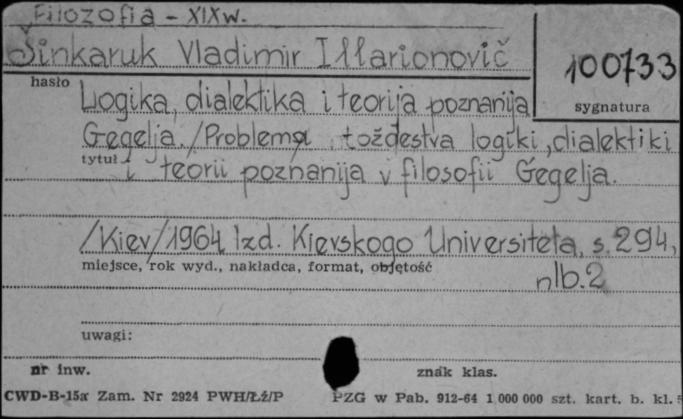 Filozofia - XIXw.
Šinkaruk Vladimir Illarionovič
100733
hasło
sygnatura
Logika, dialektika i teorija poznanija
Gegelja. /Problema toždestva logiki, dialektiki
tytuł
i teorii poznanija v filosofii Gegelja.
/Kiev/ 1964 Izd. Kievskogo Universiteta, s. 294,
miejsce, rok wyd., nakładca, format, objętość
nlb. 2
uwagi:
nr inw.
znak klas.
CWD-B-15a Zam. Nr 2924 PWH/Łź/P
PZG w Pab. 912-64 1 000 000 szt. kart. b. kl.